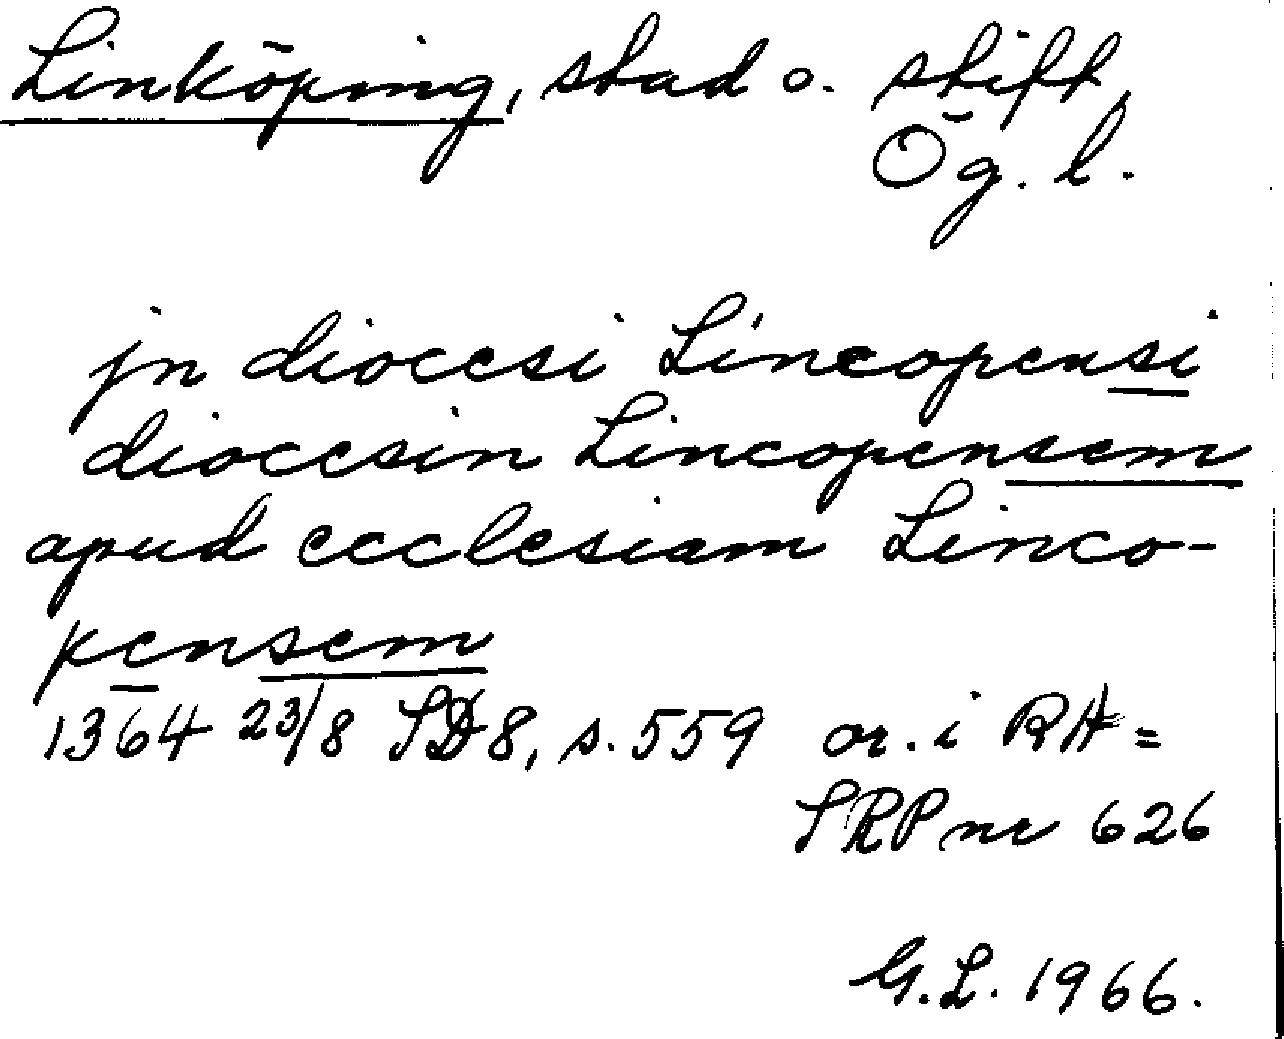 Linköping, stad o. stift,
Ög. l.
jn diocesi Lincopensi
diocesin Lincopensem
apud ecclesiam Linco-
pensem
1364 23/8 SD 8, s. 559 or. i RA =
SRP nr 626
G.L. 1966.